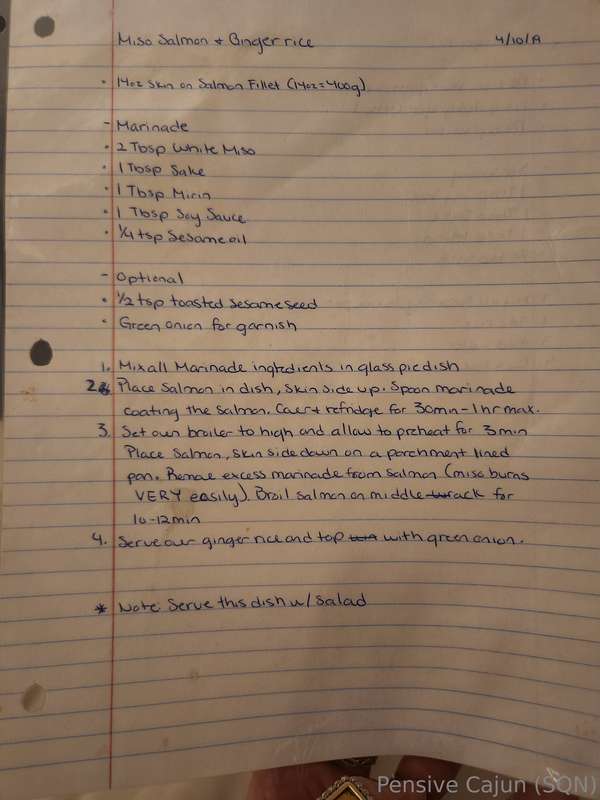 Miso Salmon + Ginger rice 4/10/19
• 14oz Skin on Salmon Fillet (14oz=400g)
- Marinade
• 2 Tbsp White Miso
• 1 Tbsp Sake
• 1 Tbsp Mirin
• 1 Tbsp Soy Sauce
• 1/4 tsp Sesame oil
- Optional
• 1/2 tsp toasted sesame seed
• Green onion for garnish
1. Mix all Marinade ingredients in glass pie dish
2. Place Salmon in dish, skin side up. Spoon marinade
coating the salmon. Cover + refridge for 30min - 1hr max.
3. Set oven broiler to high and allow to preheat for 3 min
Place Salmon, skin side down on a parchment lined
pan. Remove excess marinade from salmon (miso burns
VERY easily). Broil salmon on middle rack for
10-12min
4. Serve over ginger rice and top with green onion.
* Note: Serve this dish w/ Salad
Pensive Cajun (SON)